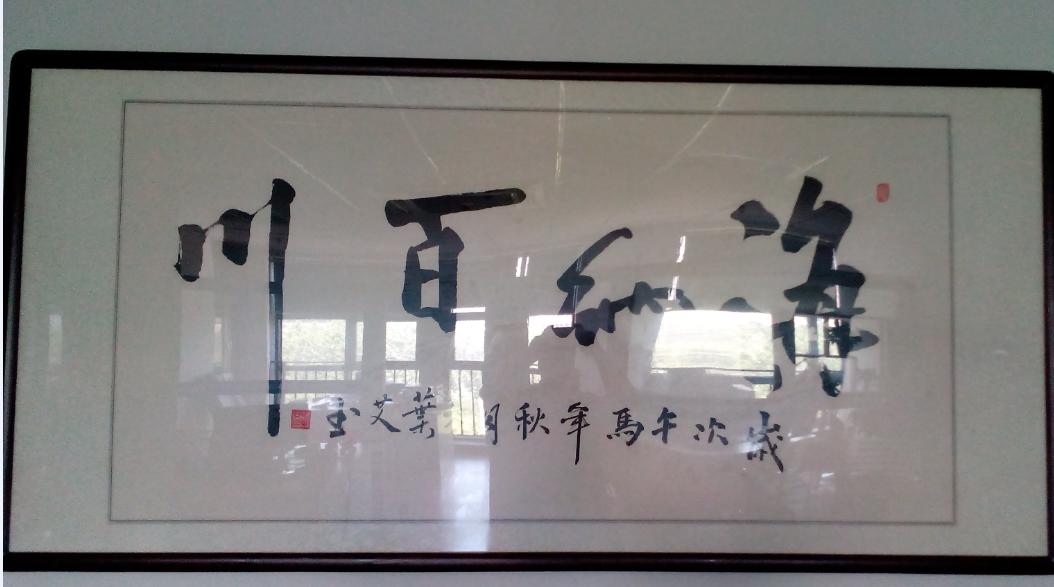 海納百川
歲次午馬年秋月葉艾玉